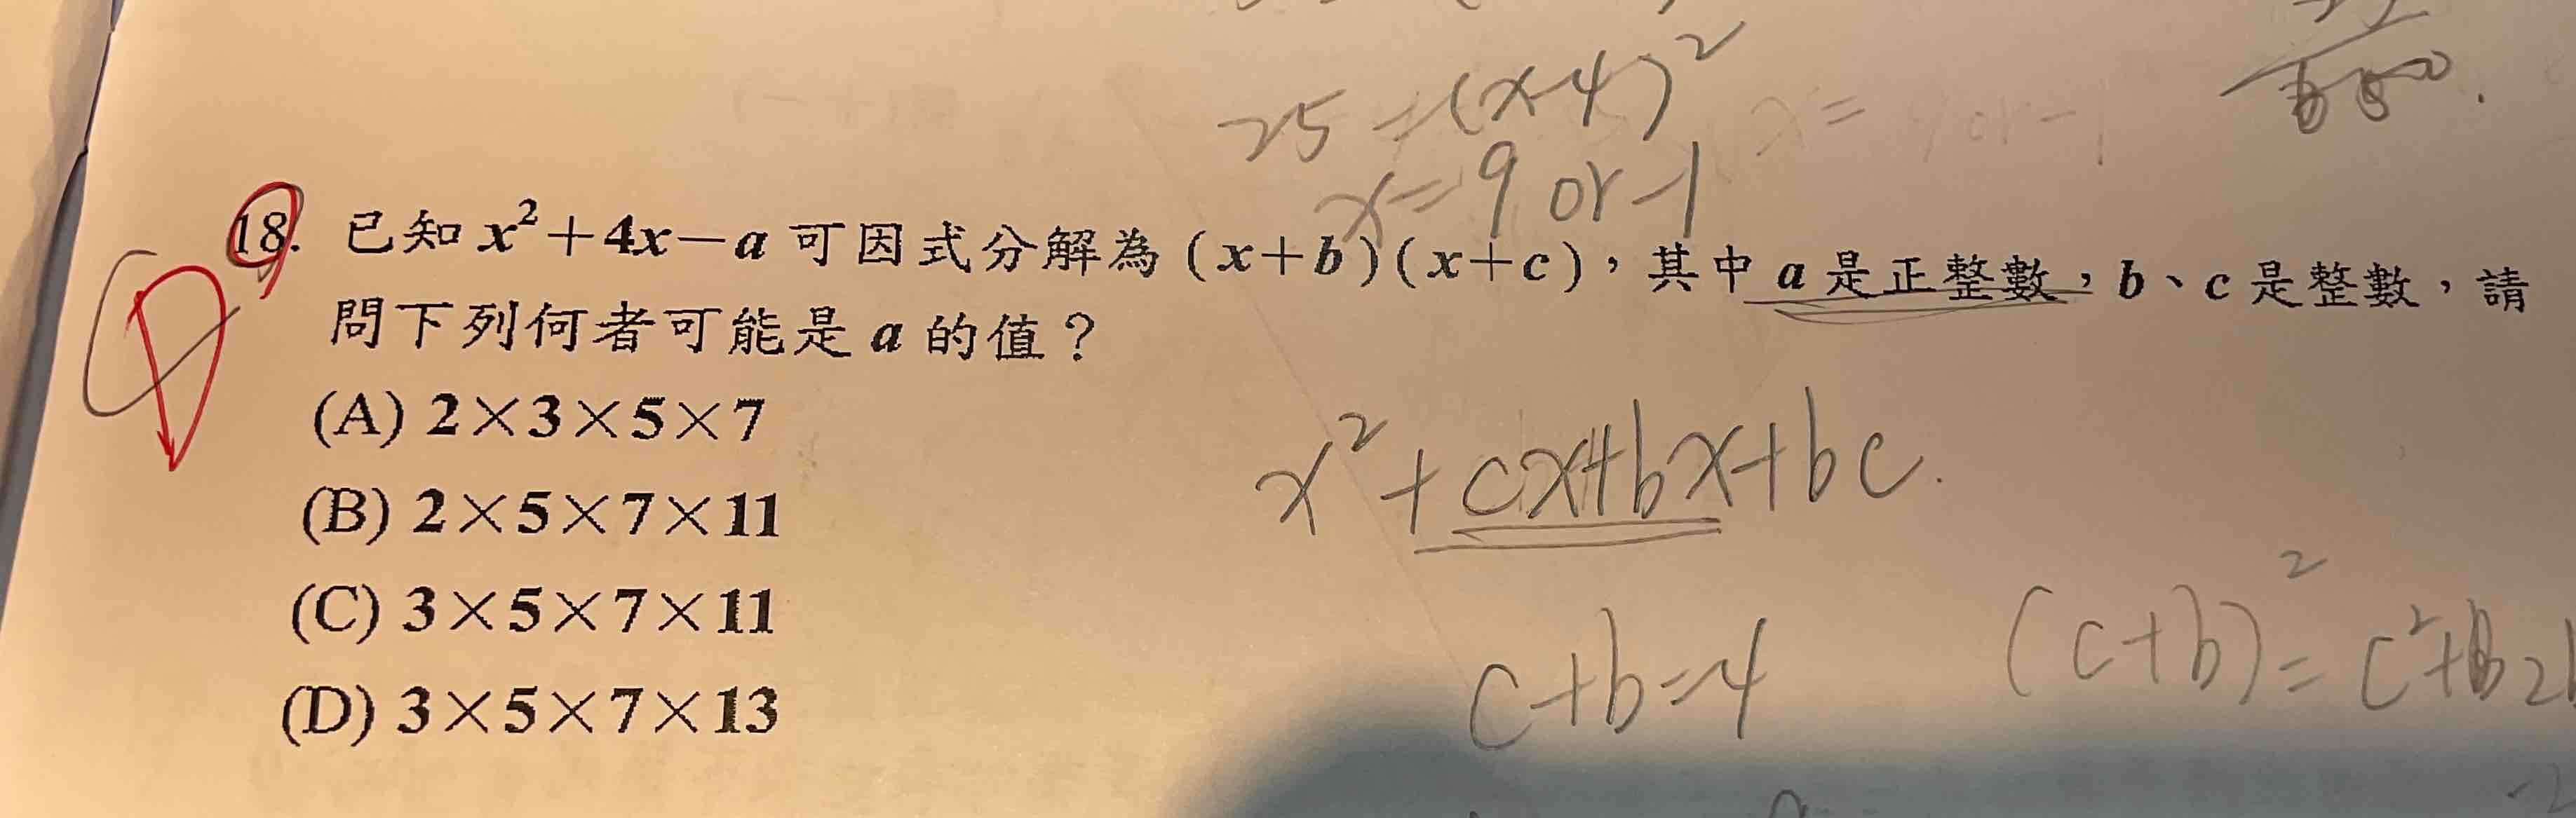 25=(x-4)²
x=9 or -1
18. 已知 x²+4x-a 可因式分解為 (x+b)(x+c)，其中 a 是正整數，b、c 是整數，請
問下列何者可能是 a 的值？
(A) 2×3×5×7
(B) 2×5×7×11
x²+cx+bx+bc
(C) 3×5×7×11
(D) 3×5×7×13
c+b=4
(c+b)²=c²+